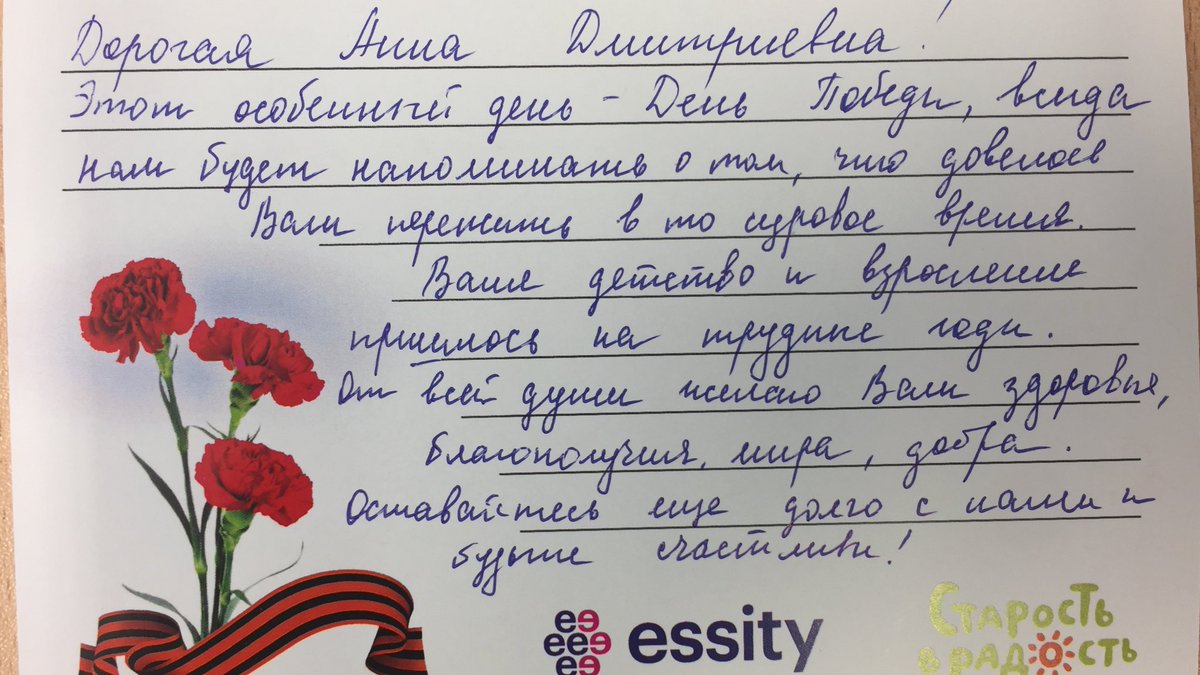 Дорогая Анна Дмитриевна!
Этот особенный день - День Победы, всегда
нам будет напоминать о том, что довелось
Вам пережить в то суровое время.
Ваше детство и взросление
пришлось на трудные годы.
От всей души желаю Вам здоровья,
благополучия, мира, добра.
Оставайтесь еще долго с нами и
будьте счастливы!
essity
Старость
в радость